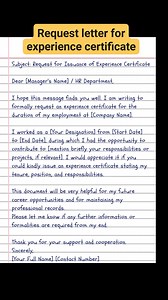 Request letter for
experience certificate
Subject: Request for Issuance of Experience Certificate
Dear [Manager's Name] / HR Department,
I hope this message finds you well. I am writing to
formally request an experience certificate for the
duration of my employment at [Company Name].
I worked as a [Your Designation] from [Start Date]
to [End Date], during which I had the opportunity to
contribute to [mention briefly your responsibilities or
projects, if relevant]. I would appreciate it if you
could kindly issue an experience certificate stating my
tenure, position, and responsibilities.
This document will be very helpful for my future
career opportunities and for maintaining my
professional records.
Please let me know if any further information or
formalities are required from my end.
Thank you for your support and cooperation.
Sincerely,
[Your Full Name] [Contact Number]